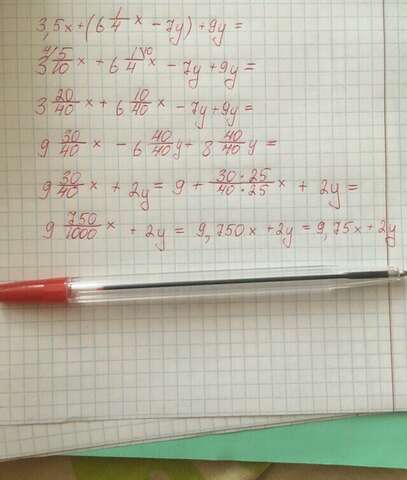 3,5x+(6 1/4 x - 7y)+9y=
3 5/10 x + 6 1/4 x - 7y+9y=
3 20/40 x + 6 10/40 x - 7y+9y=
9 30/40 x - 6 40/40 y + 8 40/40 y =
9 30/40 x + 2y = 9 + 30·25/40·25 x + 2y =
9 750/1000 x + 2y = 9,750x+2y = 9,75x+2y